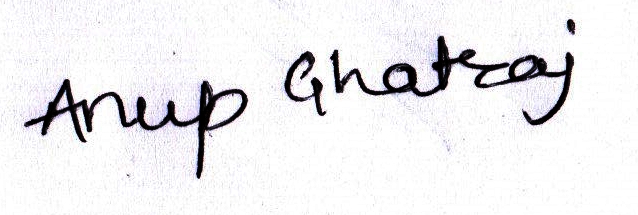 Anup Ghatraj